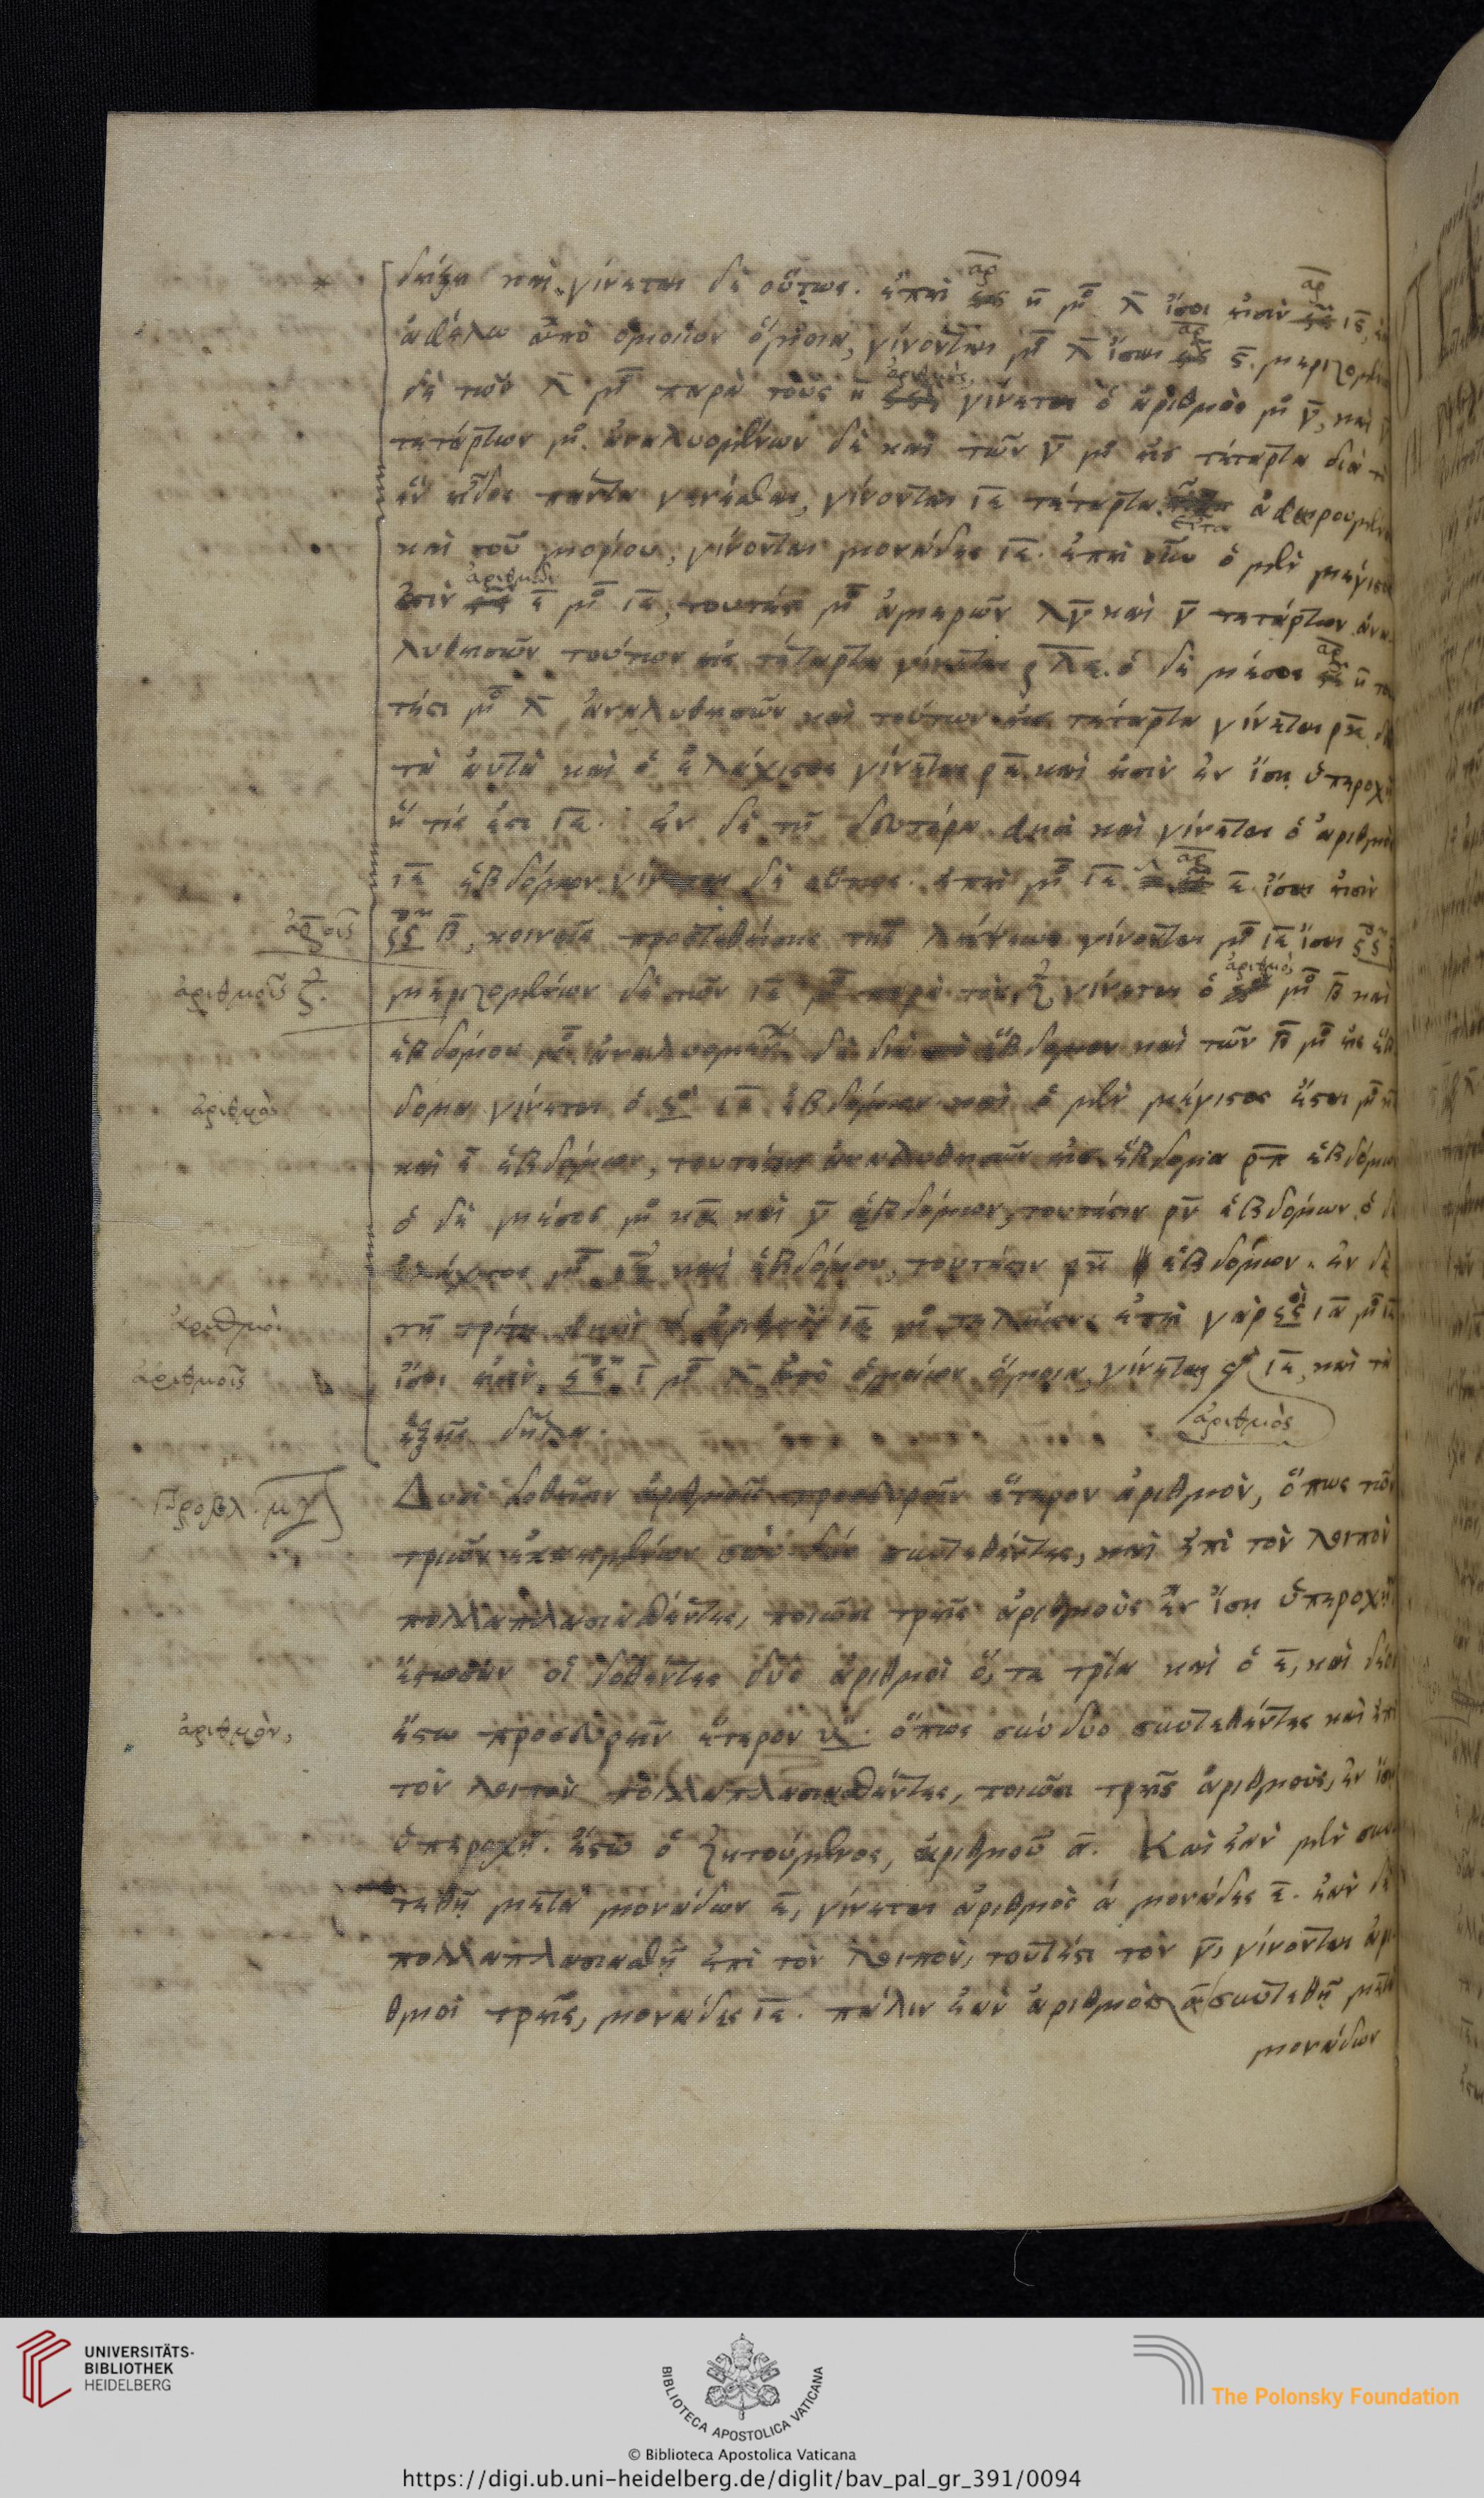 δείξει καὶ γίνεται δὲ οὕτως. ἐπεὶ ἀρ η̄ μο λ̄ ἴσοι εἰσὶν ἀρ ις̄,
ἀφέλω ἀπὸ ὁμοίων ὅμοια, γίνονται μο λ̄ ἴσαι ἀρ
δὲ τῶν λ̄ μο παρὰ τοὺς η ἀριθμοὺς γίνεται ὁ ἀριθμὸς μο γ̄, καὶ
τετάρτων μο. ἀναλυομένων δὲ καὶ τῶν γ̄ μο εἰς τέταρτα διὰ τὸ
ἓν εἶδος πάντα γενέσθαι, γίνονται ιε̄ τέταρτα. εἶτα
καὶ τοῦ μορίου, γίνονται μονάδες ιε̄. ἐπεὶ οὖν ὁ μὲν μέγιστος
ἐστὶν ἀριθμῶν ε̄ μο ιε̄, τουτέστι μο ἀμερῶν λγ̄ καὶ γ̄ τετάρτων ἀνα-
λυθεισῶν τούτων εἰς τέταρτα γίνεται ρλε. ὁ δὲ μέσος ἀρ η̄ του
τέστι μο λ̄ ἀναλυθεισῶν καὶ τούτων εἰς τέταρτα γίνεται ρκ̄.
τὰ αὐτὰ καὶ ὁ ἐλάχιστος γίνεται ρε̄ καὶ εἰσὶν ἐν ἴσῃ ὑπεροχῇ
ἥ τίς ἐστι ιε̄. ἐν δὲ τῇ δευτέρᾳ φησὶ καὶ γίνεται ὁ ἀριθμὸς
ιε̄ ἑβδόμων γίνεται δὲ οὕτως. ἐπεὶ μο ιε̄ ἀρ ε̄ ἴσαι εἰσὶν
ἀρ οῖς
ςς β̄, κοινῆς προστεθείσης τῆς λείψεως γίνονται μο ιε̄ ἴσαι ςς
ἀριθμοῖς ζ̄.
μεριζομένων δὲ τῶν ιε̄ μο παρὰ τὸν ζ̄, γίνεται ὁ ἀριθμὸς μο β̄ καὶ
ἑβδόμου μο. ἀναλυομένων δὲ διὰ τὸ ἕβδομον καὶ τῶν β̄ μο εἰς ἕβ
ἀριθμὸς
δομα γίνεται ὁ ς ιε̄ ἑβδόμων καὶ ὁ μὲν μέγιστος ἔσται μο κ
καὶ ε̄ ἑβδόμων, τουτέστιν ἀναλυθεισῶν εἰς ἕβδομα ρ̄π̄ ἑβδόμων
ὁ δὲ μέσος μο κᾱ καὶ γ̄ ἑβδόμων, τουτέστιν ρν̄ ἑβδόμων. ὁ δὲ
ἐλάχιστος μο ιζ̄ καὶ ἑβδόμου, τουτέστιν ρκ̄ ἑβδόμων. ἐν δὲ
ἀριθμοὶ
τῇ τρίτῃ φησὶ ὁ ἀριθμὸς ιε̄ μο τελείων. ἐπεὶ γὰρ ςς ιᾱ μο ιε̄
ἀριθμοῖς
ἴσοι εἰσὶν ςς ῑ μο λ̄, ἀπὸ ὁμοίων ὅμοια, γίνεται ςος ιε̄, καὶ τὰ
ἀριθμὸς
ἑξῆς δῆλα.
Προβλ. μγ
Δυσὶ δοθεῖσιν ἀριθμοῖς προσευρεῖν ἕτερον ἀριθμὸν, ὅπως τῶν
τριῶν ἐκκειμένων σὺν δύο συντεθέντες, καὶ ἐπὶ τὸν λοιπὸν
πολλαπλασιασθέντες, ποιῶσι τρεῖς ἀριθμοὺς ἐν ἴσῃ ὑπεροχῇ
ἔστωσαν οἱ δοθέντες δύο ἀριθμοὶ ὅ, τε τρία καὶ ὁ ε̄, καὶ δέον
ἀριθμὸν,
ἔστω προσευρεῖν ἕτερον ςον. ὅπως σὺν δύο συντεθέντες καὶ ἐπὶ
τὸν λοιπὸν πολλαπλασιασθέντες, ποιῶσι τρεῖς ἀριθμοὺς, ἐν ἴσῃ
ὑπεροχῇ. ἔστω ὁ ζητούμενος, ἀριθμοῦ ᾱ. Καὶ ἐὰν μὲν συν
τεθῇ μετὰ μονάδων ε̄, γίνεται ἀριθμὸς ά μονάδες ε̄. ἐὰν δὲ
πολλαπλασιασθῇ ἐπὶ τὸν λοιπὸν, τουτέστι τὸν γ̄, γίνονται ἀρ
θμοὶ τρεῖς, μονάδες ιε̄. πάλιν ἐὰν ἀριθμὸς ᾱ συντεθῇ μετὰ
μονάδων
UNIVERSITÄTS-
BIBLIOTHEK
HEIDELBERG
BIBLIOTECA APOSTOLICA VATICANA
The Polonsky Foundation
© Biblioteca Apostolica Vaticana
https://digi.ub.uni-heidelberg.de/diglit/bav_pal_gr_391/0094